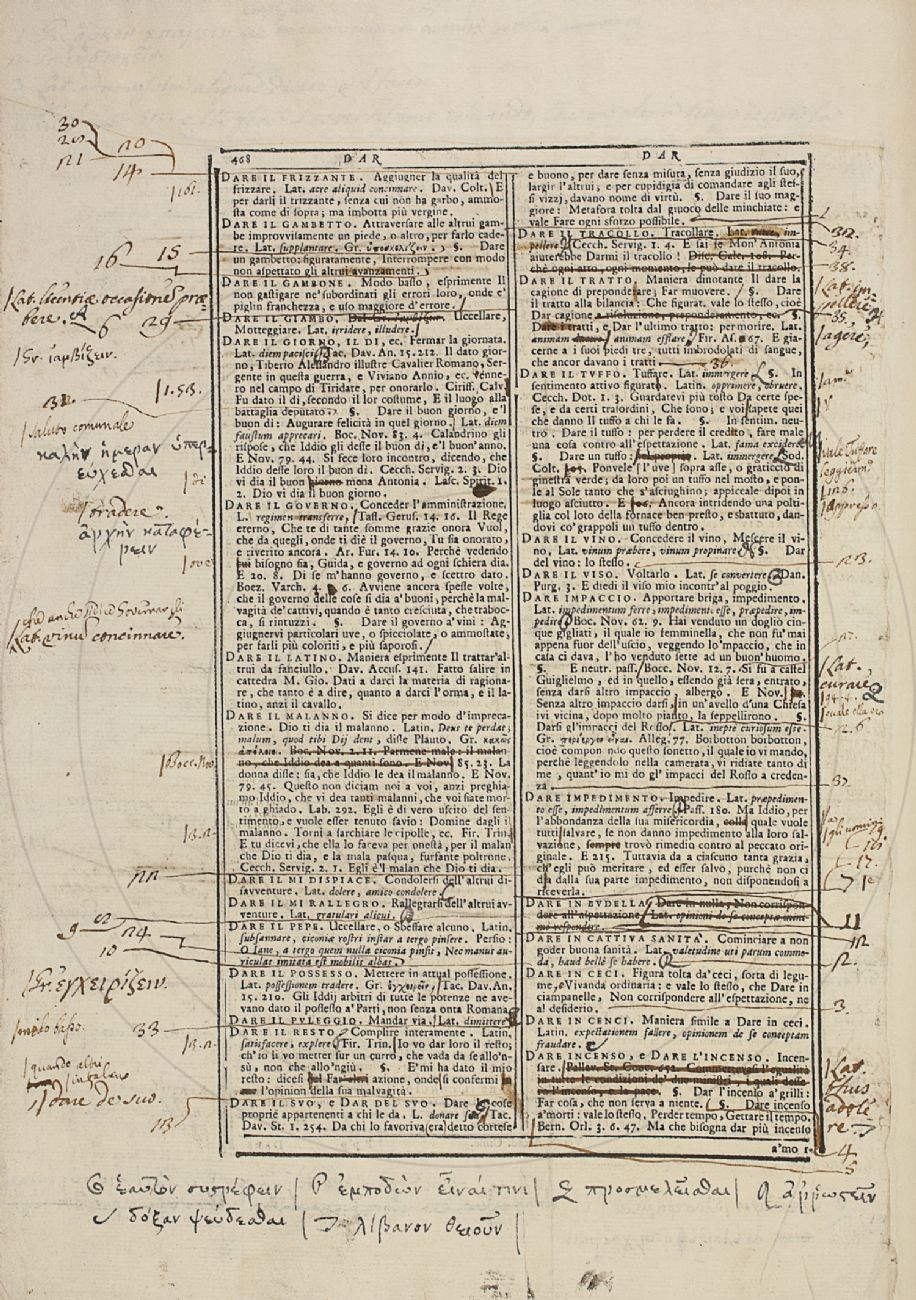 468 DAR DAR
DARE IL FRIZZANTE. Aggiugner la qualità del
frizzare. Lat. acre aliquid concinnare. Dav. Colt. E
per darli il frizzante, senza cui non ha garbo, ammo-
sta come di sopra; ma imbotta più vergine.
DARE IL GAMBETTO. Attraversare alle altrui gam-
be improvvisamente un piede, o altro, per farlo cade-
re. Lat. supplantare. Gr. ὑποσκελίζειν. §. Dare
un gambetto: figuratamente, Interrompere con modo
non aspettato gli altrui avanzamenti.
DARE IL GAMBONE. Modo basso, esprimente Il
non gastigare ne' subordinati gli errori loro, onde e'
piglin franchezza, e uso maggiore d'errore.
DARE IL GIAMBO, Uccellare,
Motteggiare. Lat. irridere, illudere.
DARE IL GIORNO, IL DI, ec. Fermar la giornata.
Lat. diem pacisci. Tac. Dav. An. 15. 212. Il dato gior-
no, Tiberio Alessandro illustre Cavalier Romano, Ser-
gente in questa guerra, e Viviano Annio, ec. venne-
ro nel campo di Tiridate, per onorarlo. Ciriff. Calv.
Fu dato il dì, secondo il lor costume, E il luogo alla
battaglia deputato. §. Dare il buon giorno, e 'l
buon dì: Augurare felicità in quel giorno. Lat. diem
faustum apprecari. Boc. Nov. 83. 4. Calandrino gli
rispose, che Iddio gli desse il buon dì, e 'l buon'anno.
E Nov. 79. 44. Si fece loro incontro, dicendo, che
Iddio desse loro il buon dì. Cecch. Servig. 2. 3. Dio
vi dia il buon giorno mona Antonia. Lasc. Spirit. 1.
2. Dio vi dia il buon giorno.
DARE IL GOVERNO. Conceder l'amministrazione.
L. regimen transferre, Tass. Gerus. 14. 16. Il Rege
eterno, Che te di tante somme grazie onora Vuol,
che da quegli, onde ti diè il governo, Tu sia onorato,
e riverito ancora. Ar. Fur. 14. 10. Perchè vedendo
bisogno sia, Guida, e governo ad ogni schiera dia.
E 20. 8. Di se m'hanno governo, e scettro dato.
Boez. Varch. 4. 6. Avviene ancora spesse volte,
che il governo delle cose si dia a' buoni, perchè la mal-
vagità de' cattivi, quando è tanto cresciuta, che traboc-
ca, si rintuzzi. §. Dare il governo a' vini: Ag-
giugnervi particolari uve, o spicciolate, o ammostate,
per farli più coloriti, e più saporosi.
DARE IL LATINO. Maniera esprimente Il trattar'al-
trui da fanciullo. Dav. Accus. 141. Fatto salire in
cattedra M. Gio. Dati a darci la materia di ragiona-
re, che tanto è a dire, quanto a darci l'orma, e il la-
tino, anzi il cavallo.
DARE IL MALANNO. Si dice per modo d'impreca-
zione. Dio ti dia il malanno. Latin. Deus te perdat;
malum, quod tibi Dij dent, disse Plauto. Gr. κακῶς
ἀπόλοιο. Boc. Nov. 2. 11. Parmene male: il malan-
no, che Iddio dea a quanti sono. E Nov. 85. 23. La
donna disse: sia, che Iddio le dea il malanno. E Nov.
79. 45. Questo non diciam noi a voi, anzi preghia-
mo Iddio, che vi dea tanti malanni, che voi siate mor-
to a ghiado. Lab. 292. Egli è di vero uscito del sen-
timento, e vuole esser tenuto savio: Domine dagli il
malanno. Torni a sarchiare le cipolle, ec. Fir. Trin.
E tu dicevi, che ella lo faceva per onestà, per il malan
che Dio ti dia, e la mala pasqua, furfante poltrone.
Cecch. Servig. 2. 1. Egli è'l malan che Dio ti dia.
DARE IL MI DISPIACE. Condolersi dell'altrui di-
savventure. Lat. dolere, amico condolere.
DARE IL MI RALLEGRO. Rallegrarsi dell'altrui av-
venture. Lat. gratulari alicui.
DARE IL PEPE. Uccellare, o Sbeffare alcuno. Latin.
subsannare, ciconiæ rostri instar a tergo pinsere. Persio:
O Jane, a tergo quem nulla ciconia pinsit, Nec manus au-
riculas imitata est mobilis albas.
DARE IL POSSESSO. Mettere in attual possessione.
Lat. possessionem tradere. Gr. ἐγχειρεῖν, Tac. Dav. An.
15. 210. Gli Iddij arbitri di tutte le potenze ne ave-
vano dato il possesso a' Parti, non senza onta Romana.
DARE IL PULEGGIO. Mandar via. Lat. dimittere.
DARE IL RESTO. Complire interamente. Latin.
satisfacere, explere. Fir. Trin. Io vo dar loro il resto;
ch'io li vo metter sur un curro, che vada da se all'o'n-
sù, non che all'o'ngiù. §. E' mi ha dato il mio
resto: dicesi azione, onde si confermi
l'opinion della sua malvagità.
DARE IL SUO, E DAR DEL SUO. Dare le cose
proprie appartenenti a chi le da. L. donare Tac.
Dav. St. 1. 254. Da chi lo favoriva (era) detto cortese
e buono, per dare senza misura, senza giudizio il suo,
largir l'altrui; e per cupidigia di comandare agli stes-
si vizzj, davano nome di virtù. §. Dare il suo mag-
giore: Metafora tolta dal giuoco delle minchiate: e
vale Fare ogni sforzo possibile.
DARE IL TRACOLLO. Tracollare. Lat. ruere, im-
pellere. Cecch. Servig. 1. 4. E sai se Mon' Antonia
aiuterebbe Darmi il tracollo! Disc. Calc. 108. Per-
chè ogni atto, ogni momento, le può dare il tracollo.
DARE IL TRATTO. Maniera dinotante Il dare la
cagione di preponderare; Far muovere. §. Dare
il tratto alla bilancia: Che figurat. vale lo stesso, cioè
Dar cagione a risoluzione, preponderamento, ec. §.
Dare i tratti, e Dar l'ultimo tratto: per morire. Lat.
animam animam efflare. Fir. As. 67. E gia-
cerne a i suoi piedi tre, tutti imbrodolati di sangue,
che ancor davano i tratti.
DARE IL TUFFO. Tuffare. Lat. immergere. §. In
sentimento attivo figurato. Latin. opprimere, obruere.
Cecch. Dot. 1. 3. Guardatevi più tosto Da certe spe-
se, e da certi trafordini, Che sono; e voi sapete quei
che danno Il tuffo a chi le fa. §. In sentim. neu-
tro. Dare il tuffo: per perdere il credito, fare male
una cosa contro all'espettazione. Lat. fama excidere.
§. Dare un tuffo: Lat. immergere. Sod.
Colt. Ponvele l'uve sopra asse, o graticcio di
ginestra verde; da loro poi un tuffo nel mosto, e pon-
le al Sole tanto che s'asciughino; appiccale dipoi in
luogo asciutto. E 105. Ancora intridendo una polti-
glia col loto della fornace ben presto, e sbattuto, dan-
dovi co' grappoli un tuffo dentro.
DARE IL VINO. Concedere il vino, Mescere il vi-
no, Lat. vinum præbere, vinum propinare. §. Dar
del vino: lo stesso.
DARE IL VISO. Voltarlo. Lat. se convertere. Dan.
Purg. 3. E diedi il viso mio incontr'al poggio.
DARE IMPACCIO. Apportare briga, impedimento.
Lat. impedimentum ferre, impedimenti esse, præpedire, im-
pedire. Boc. Nov. 62. 9. Hai venduto un doglio cin-
que gigliati, il quale io femminella, che non fu' mai
appena fuor dell'uscio, veggendo lo'mpaccio, che in
casa ci dava, l'ho venduto sette ad un buon'huomo.
§. E neutr. pass. Boc. Nov. 12. 7. Si fu a castel
Guiglielmo, ed in quello, essendo già sera, entrato,
senza darsi altro impaccio, albergò. E Nov.
Senza altro impaccio darsi, in un'avello d'una Chiesa
ivi vicina, dopo molto pianto, la seppellirono. §.
Darsi gl'impacci del Rosso. Lat. inepte curiosum esse.
Gr. Alleg. 77. Borbotton borbotton,
cioè compon ndo questo sonetto, il quale io vi mando,
perchè leggendolo nella camerata, vi ridiate tanto di
me, quant'io mi do gl'impacci del Rosso a creden-
za
DARE IMPEDIMENTO. Impedire. Lat. præpedimen-
to esse, impedimentum afferre. Pass. 180. Ma Iddio, per
l'abbondanza della sua misericordia, colla quale vuole
tutti salvare, se non danno impedimento alla loro sal-
vazione, sempre trovò rimedio contro al peccato ori-
ginale. E 215. Tuttavia da a ciascuno tanta grazia,
ch'egli può meritare, ed esser salvo, purchè non ci
dia dalla sua parte impedimento, non disponendosi a
riceverla.
DARE IN BUDELLA, Dare in nulla, Non corrispon-
dere all'aspettazione. Lat. opinioni de se conceptæ mini-
me respondere.
DARE IN CATTIVA SANITA'. Cominciare a non
goder buona sanità. Lat. valetudine uti parum commo-
da, haud bellè se habere.
DARE IN CECI. Figura tolta da' ceci, sorta di legu-
me, e Vivanda ordinaria: e vale lo stesso, che Dare in
ciampanelle, Non corrispondere all'espettazione, ne
al desiderio.
DARE IN CENCI. Maniera simile a Dare in ceci.
Latin. expectationem fallere, opinionem de se conceptam
fraudare.
DARE INCENSO, E DARE L'INCENSO. Incen-
sare.
§. Dar l'incenso a' grilli:
Far cosa, che non serva a niente. §. Dare incenso
a' morti: vale lo stesso, Perder tempo, Gettare il tempo.
Bern. Orl. 3. 6. 47. Ma che bisogna dar più incenso
a' mo r-
30
20
21
14
16 15
Lat. licentiæ occasionem præ
bere.
6 29
Gr. ἰαμβίζειν.
1.53.
saluto comunale
καλὴν ἡμέραν ὑπερ-
εύχεσθαι
di
tradere
ἀρχὴν καταφέ-
ρειν
ove
Lat. vinum concinnare.
Bocc. Nov
9 24
10
Gr. ἐγχειρίζειν.
modo basso.
33
quando altri
dare de suo.
13
32.
34.
38.
Lat. im-
pellere
35.
agere
36.
vale Tuffare
23.
Lat.
curare
32
11
12
3.
Lat.
thus
adole
re
4
5
ἑαυτὸν συστρέφειν | ἐμποδὼν εἶναί τινι | προσμελεῖσθαι | ἀῤῥωστεῖν
δόξαν ψεύδεσθαι | λίβανον